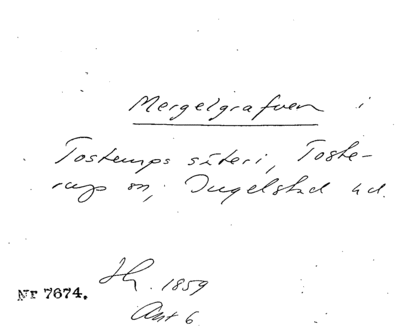 Mergelgrafven i
Tosterups säteri, Toste-
rups sn, Ingelstad hd.
Nr 7674.
1859
Ant 6